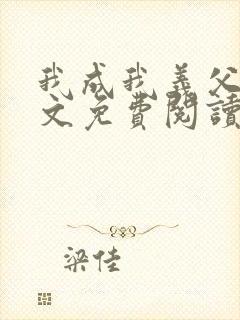 我成我義父
文免費閱讀
梁佳